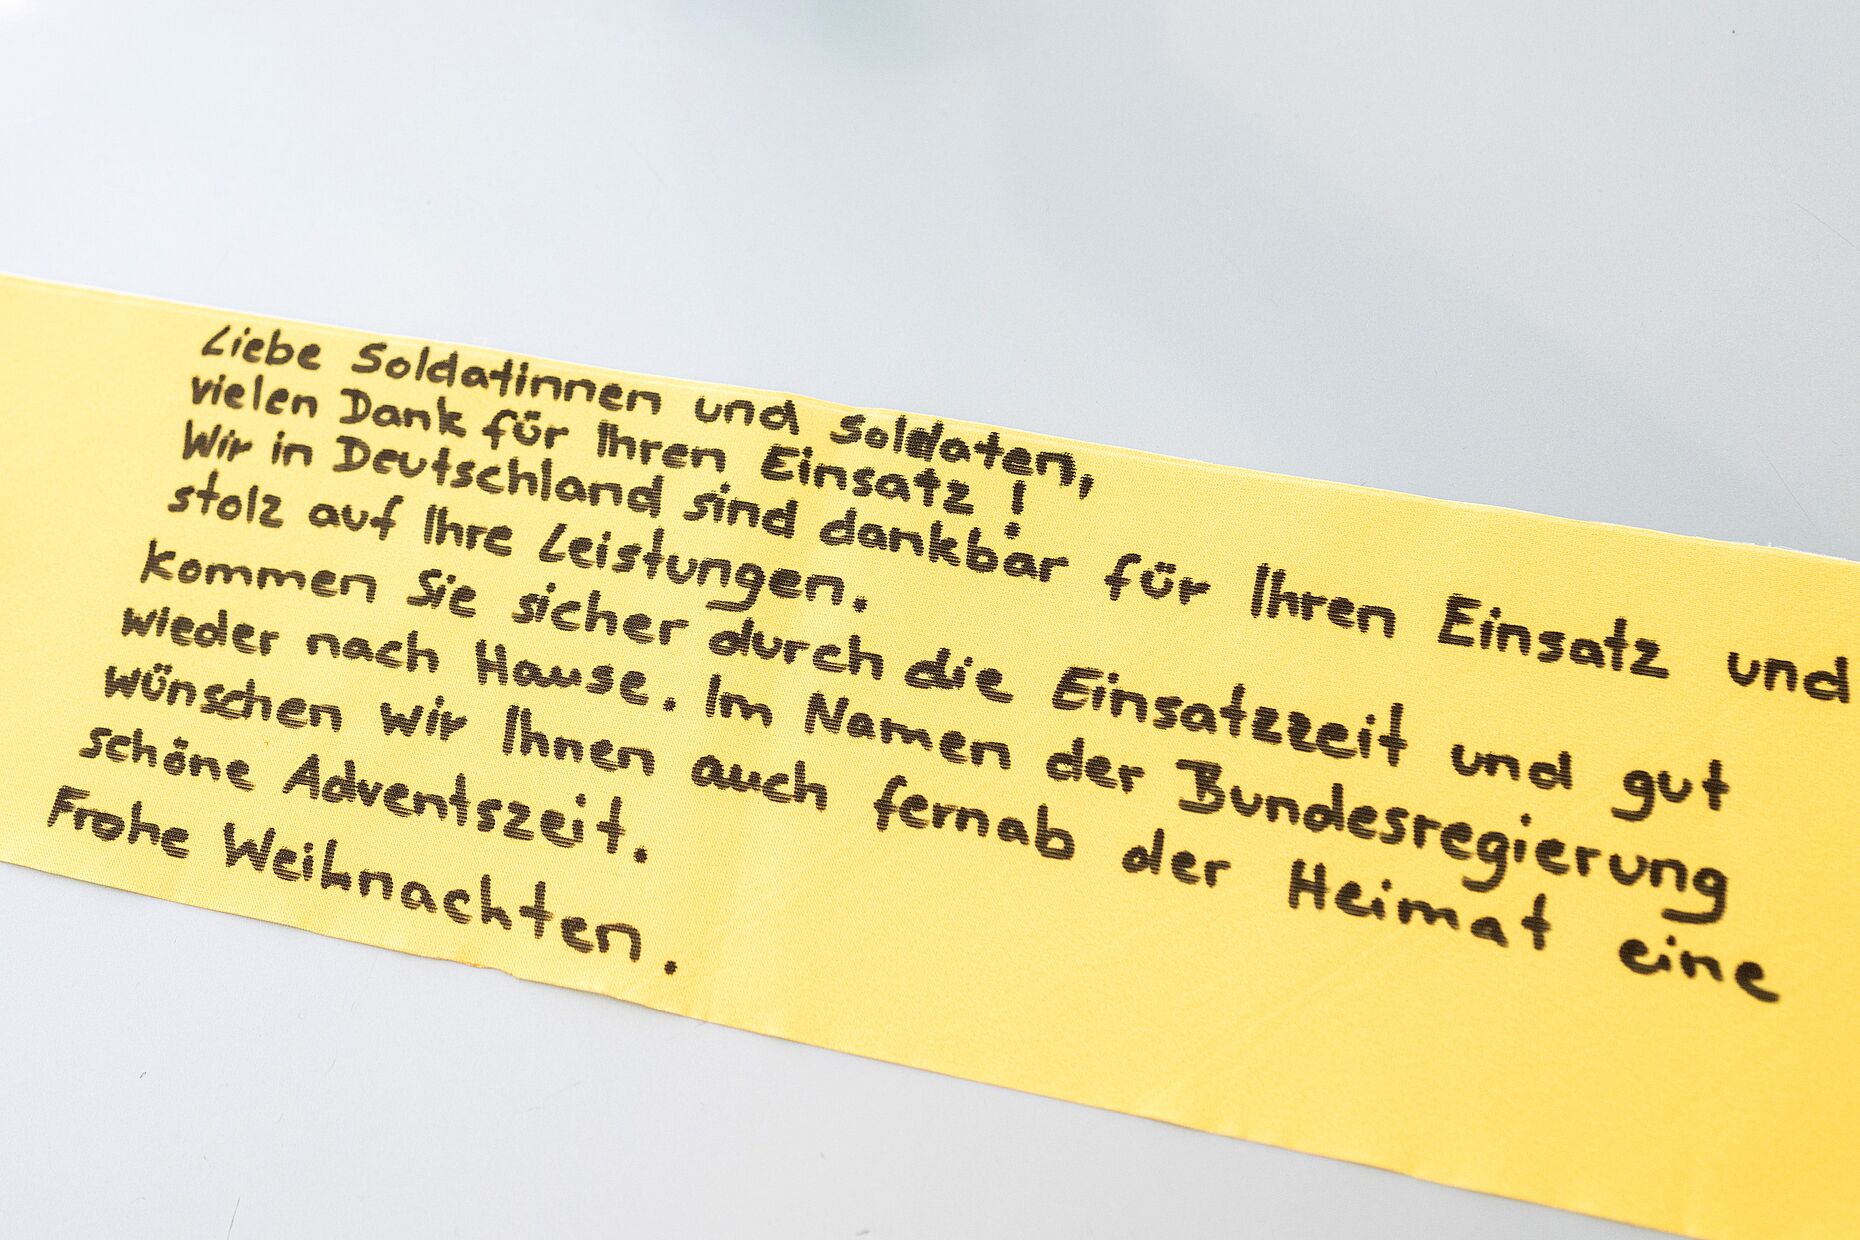 Liebe Soldatinnen und Soldaten,
vielen Dank für Ihren Einsatz!
Wir in Deutschland sind dankbar für Ihren Einsatz und
stolz auf Ihre Leistungen.
Kommen Sie sicher durch die Einsatzzeit und gut
wieder nach Hause. Im Namen der Bundesregierung
wünschen wir Ihnen auch fernab der Heimat eine
schöne Adventszeit.
Frohe Weihnachten.